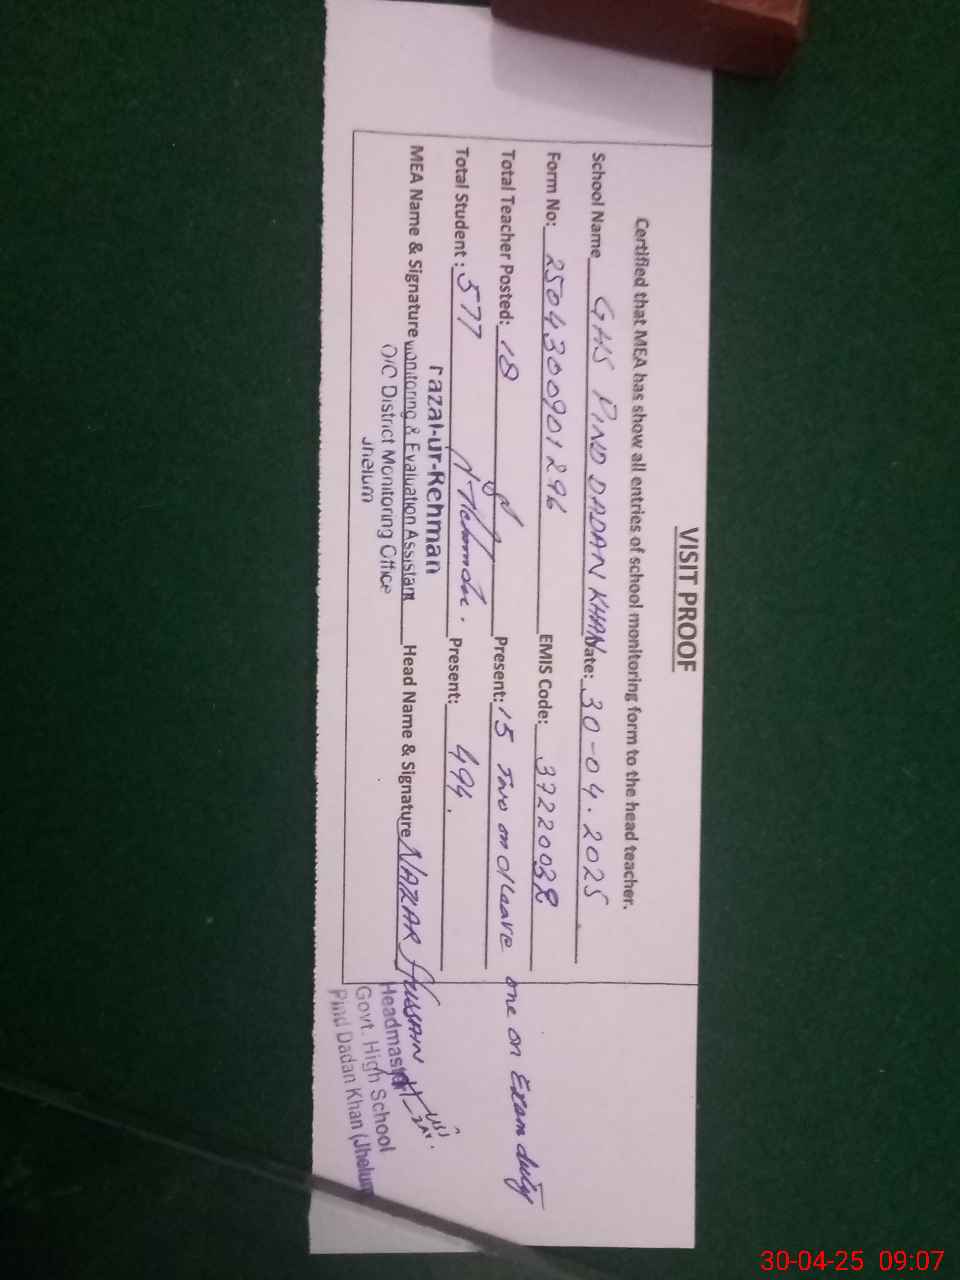 VISIT PROOF
Certified that MEA has show all entries of school monitoring form to the head teacher.
School Name GHS PIND DADAN KHAN Date: 30-04.2025
Form No: 2504300901296 EMIS Code: 37220038
Total Teacher Posted: 18 Present: 15 Two on leave one on Exam duty
Total Student: 577 Present: 494.
Fazal-ur-Rehman
MEA Name & Signature Monitoring & Evaluation Assistant Head Name & Signature NAZAR HUSSAIN
O/C District Monitoring Office
Jhelum
Headmaster
Govt. High School
Pind Dadan Khan (Jhelum
30-04-25 09:07